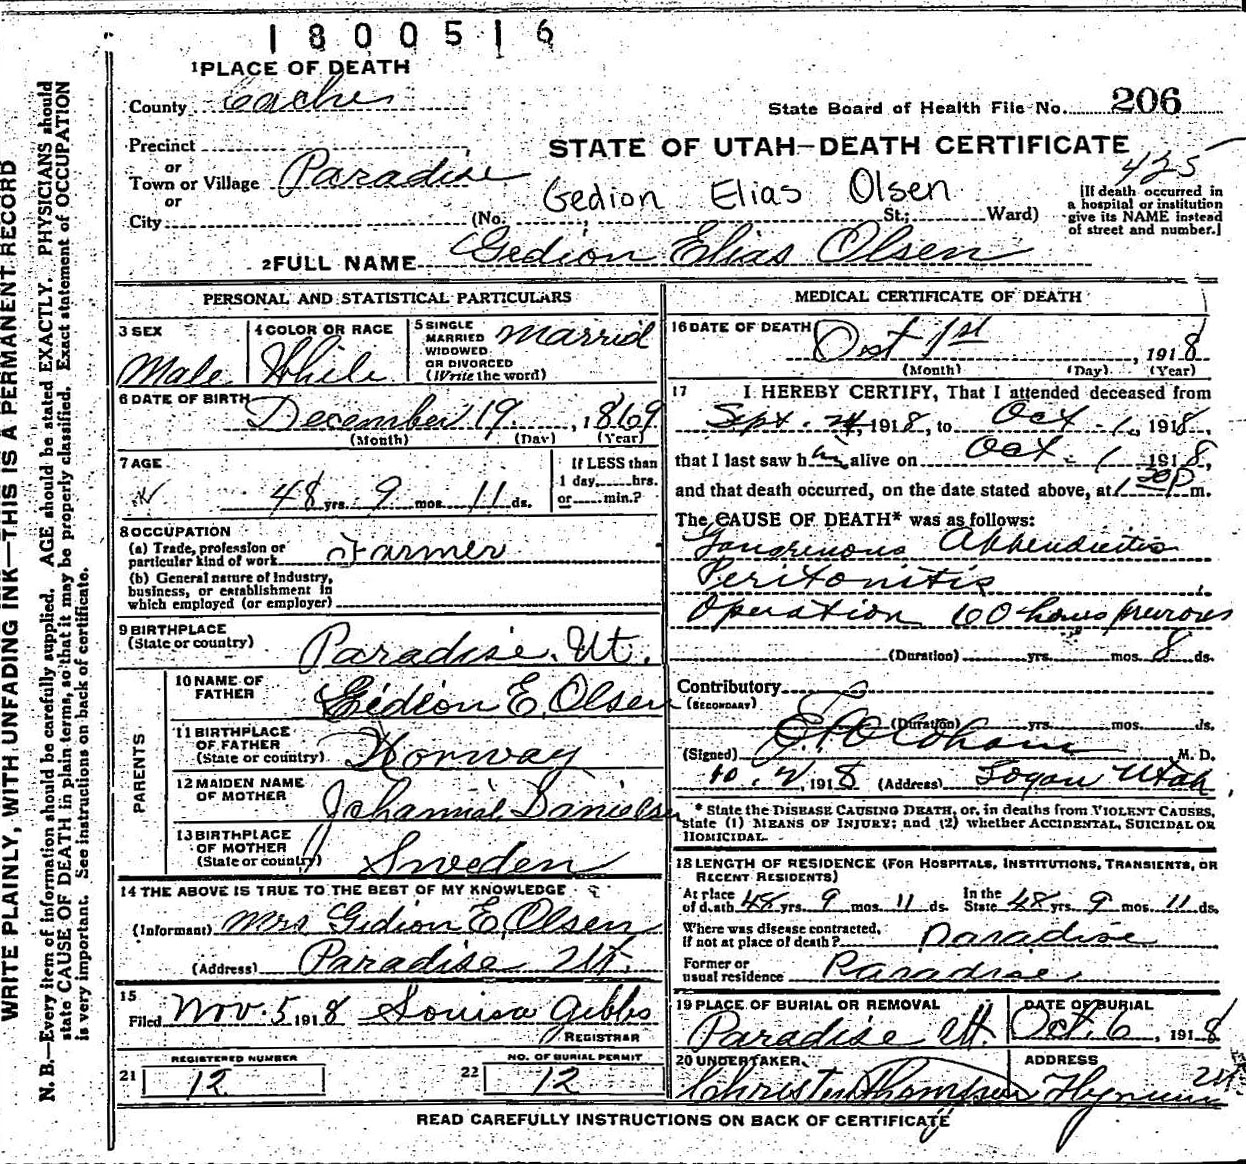 1800516
1 PLACE OF DEATH
County Cache
State Board of Health File No. 206
Precinct
or
Town or Village Paradise
or
City (No. St.; Ward)
STATE OF UTAH—DEATH CERTIFICATE
425
Gedion Elias Olsen
[If death occurred in
a hospital or institution
give its NAME instead
of street and number.]
2 FULL NAME Gedion Elias Olsen
WRITE PLAINLY, WITH UNFADING INK—THIS IS A PERMANENT RECORD
N. B.—Every item of information should be carefully supplied. AGE should be stated EXACTLY. PHYSICIANS should
state CAUSE OF DEATH in plain terms, so that it may be properly classified. Exact statement of OCCUPATION
is very important. See instructions on back of certificate.
PERSONAL AND STATISTICAL PARTICULARS
3 SEX
Male
4 COLOR OR RACE
White
5 SINGLE
MARRIED
WIDOWED
OR DIVORCED
(Write the word)
Married
6 DATE OF BIRTH
December 19, 1869
(Month) (Day) (Year)
7 AGE
48 yrs. 9 mos. 11 ds.
If LESS than
1 day, hrs.
or min.?
8 OCCUPATION
(a) Trade, profession or
particular kind of work Farmer
(b) General nature of Industry,
business, or establishment in
which employed (or employer)
9 BIRTHPLACE
(State or country) Paradise, Ut.
PARENTS
10 NAME OF
FATHER Gidion E. Olsen
11 BIRTHPLACE
OF FATHER
(State or country) Norway
12 MAIDEN NAME
OF MOTHER Danielsen
13 BIRTHPLACE
OF MOTHER
(State or country) Sweden
14 THE ABOVE IS TRUE TO THE BEST OF MY KNOWLEDGE
(Informant) Mrs Gidion E. Olsen
(Address) Paradise Ut.
15
Filed Nov. 5 1918 Louisa Gibbs
REGISTRAR
REGISTERED NUMBER
21 12
NO. OF BURIAL PERMIT
22 12
MEDICAL CERTIFICATE OF DEATH
16 DATE OF DEATH
Oct 1st, 1918
(Month) (Day) (Year)
17 I HEREBY CERTIFY, That I attended deceased from
Sept. 24, 1918, to Oct - 1, 1918,
that I last saw him alive on Oct - 1 1918,
and that death occurred, on the date stated above, at 1 30 P m.
The CAUSE OF DEATH* was as follows:
Gangrenous Appendicitis
Peritonitis
Operation 60 hours previous
(Duration) yrs. mos. 8 ds.
Contributory
(SECONDARY)
(Duration) yrs. mos. ds.
(Signed) M. D.
10. 2, 1918 (Address) Logan Utah
* State the DISEASE CAUSING DEATH, or, in deaths from VIOLENT CAUSES,
state (1) MEANS OF INJURY; and (2) whether ACCIDENTAL, SUICIDAL OR
HOMICIDAL.
18 LENGTH OF RESIDENCE (FOR HOSPITALS, INSTITUTIONS, TRANSIENTS, OR
RECENT RESIDENTS)
At place
of death 48 yrs. 9 mos. 11 ds.
In the
State 48 yrs. 9 mos. 11 ds.
Where was disease contracted,
if not at place of death? Paradise
Former or
usual residence Paradise
19 PLACE OF BURIAL OR REMOVAL
Paradise Ut.
DATE OF BURIAL
Oct. 6, 1918
20 UNDERTAKER
Thompson
ADDRESS
READ CAREFULLY INSTRUCTIONS ON BACK OF CERTIFICATE